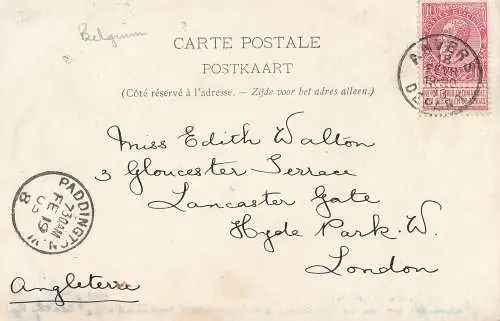 Belgium
CARTE POSTALE
POSTKAART
(Côté réservé à l'adresse. — Zijde voor het adres alleen.)
10
ANVERS
18
DÉPART
Miss Edith Walton
3 Gloucester Terrace
Lancaster Gate
Hyde Park. W.
London
Angleterre
PADDINGTON. W
7 30 AM
FE 19
8